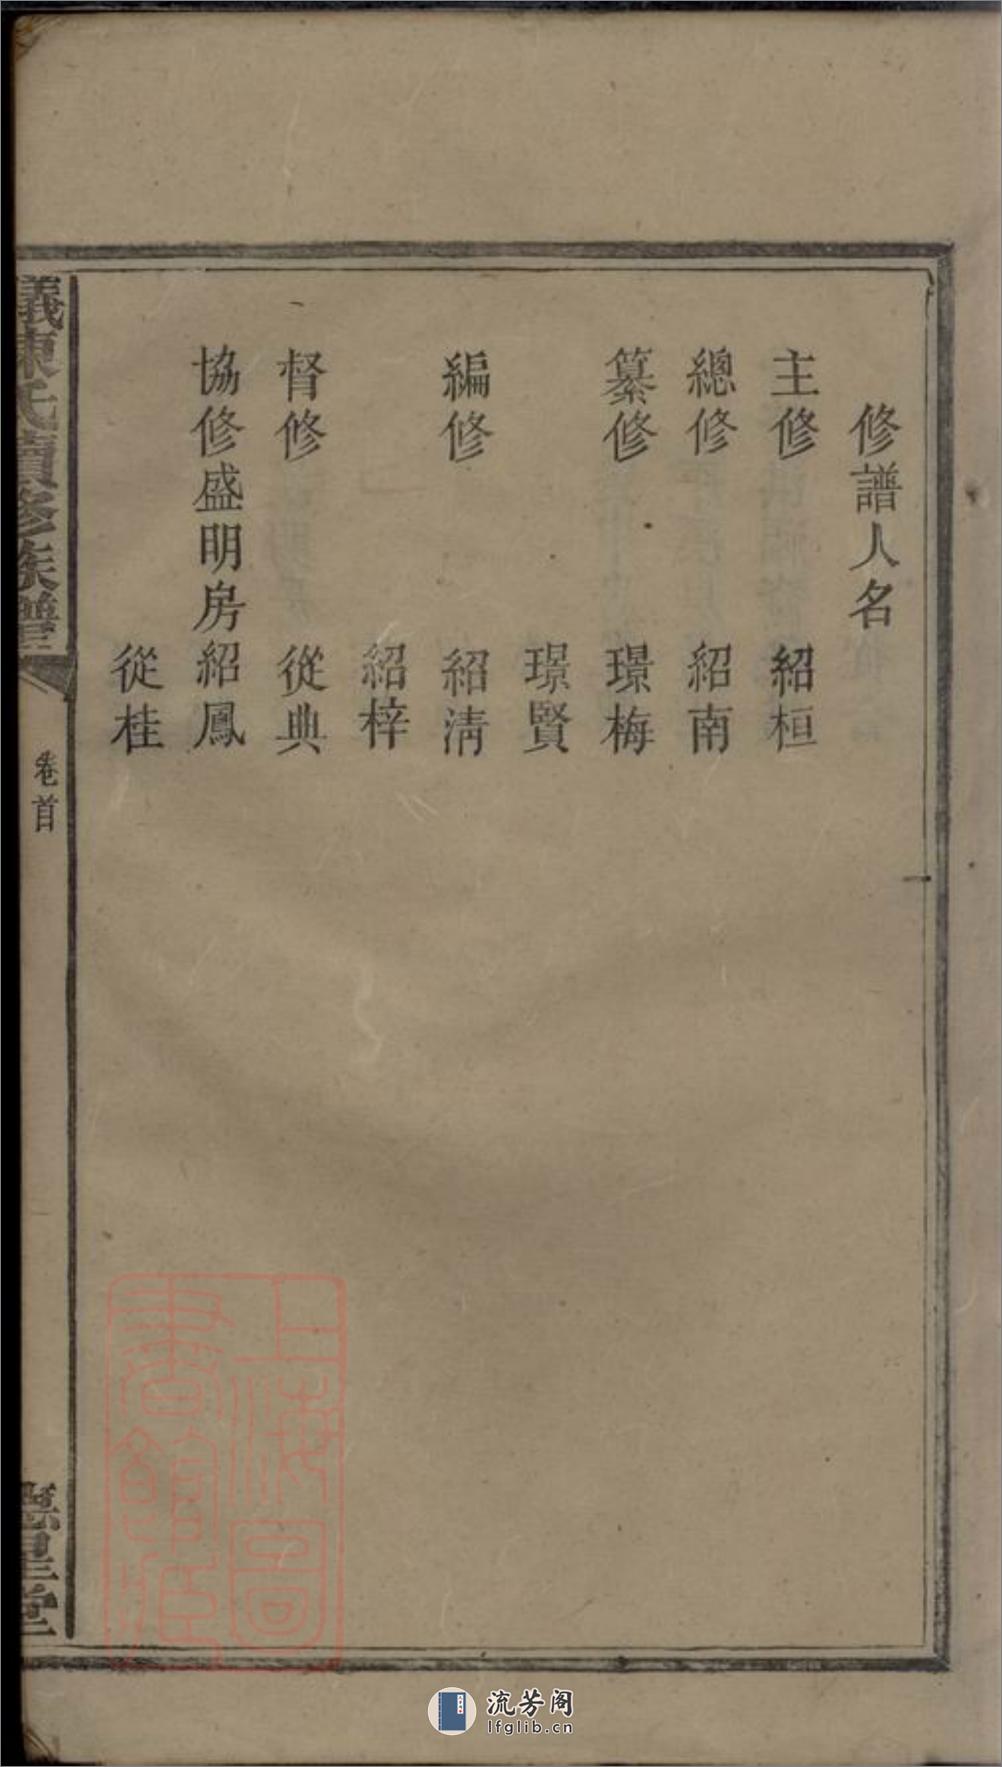 修譜人名
主修 紹桓
總修 紹南
纂修 璟梅
璟賢
編修 紹清
紹梓
督修 從典
協修盛明房紹鳳
從桂
義陳氏續修族譜
卷首
星堂
上海圖書館藏
流芳阁
lfglib.cn